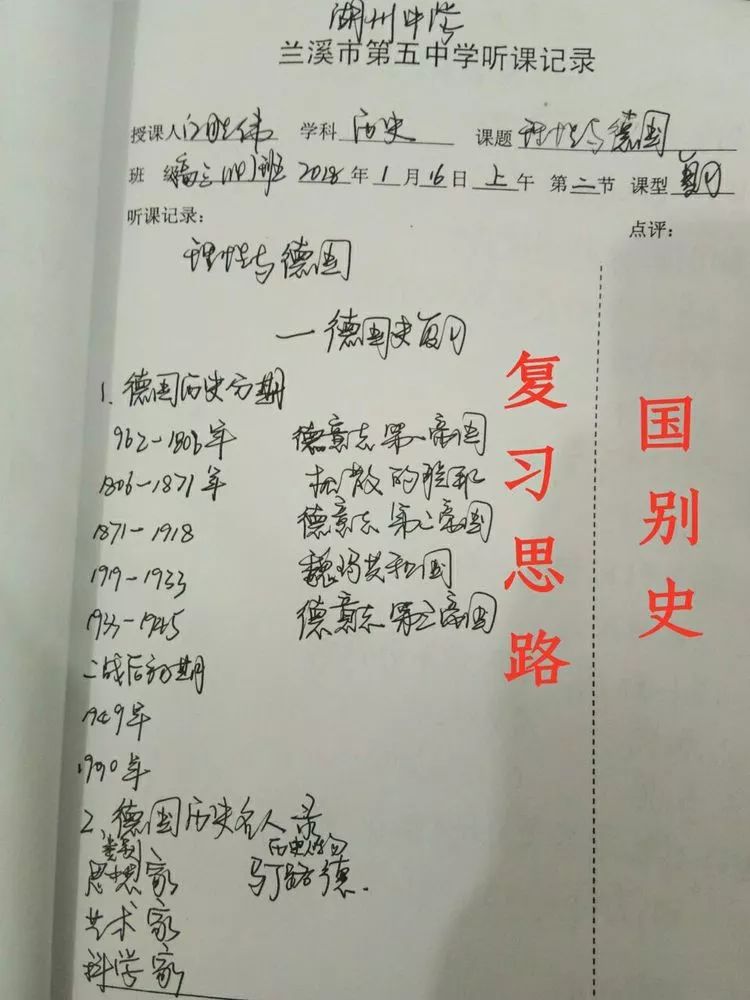 湖州中学
兰溪市第五中学听课记录
授课人 胜伟 学科 历史 课题 理性与德国
班 级 高三 班 2018年1月16日上午 第二节 课型 复习
听课记录:
点评:
理性与德国
一德国史复习
1、德国历史分期
962-1806年 德意志第一帝国
1806-1871年 松散的
1871-1918 德意志第二帝国
1919-1933 魏玛共和国
1933-1945 德意志第三帝国
二战后初期
1949年
1990年
2、德国历史名人录
类别 历史人物
思想家 马丁路德.
艺术家
科学家
复习思路
国别史